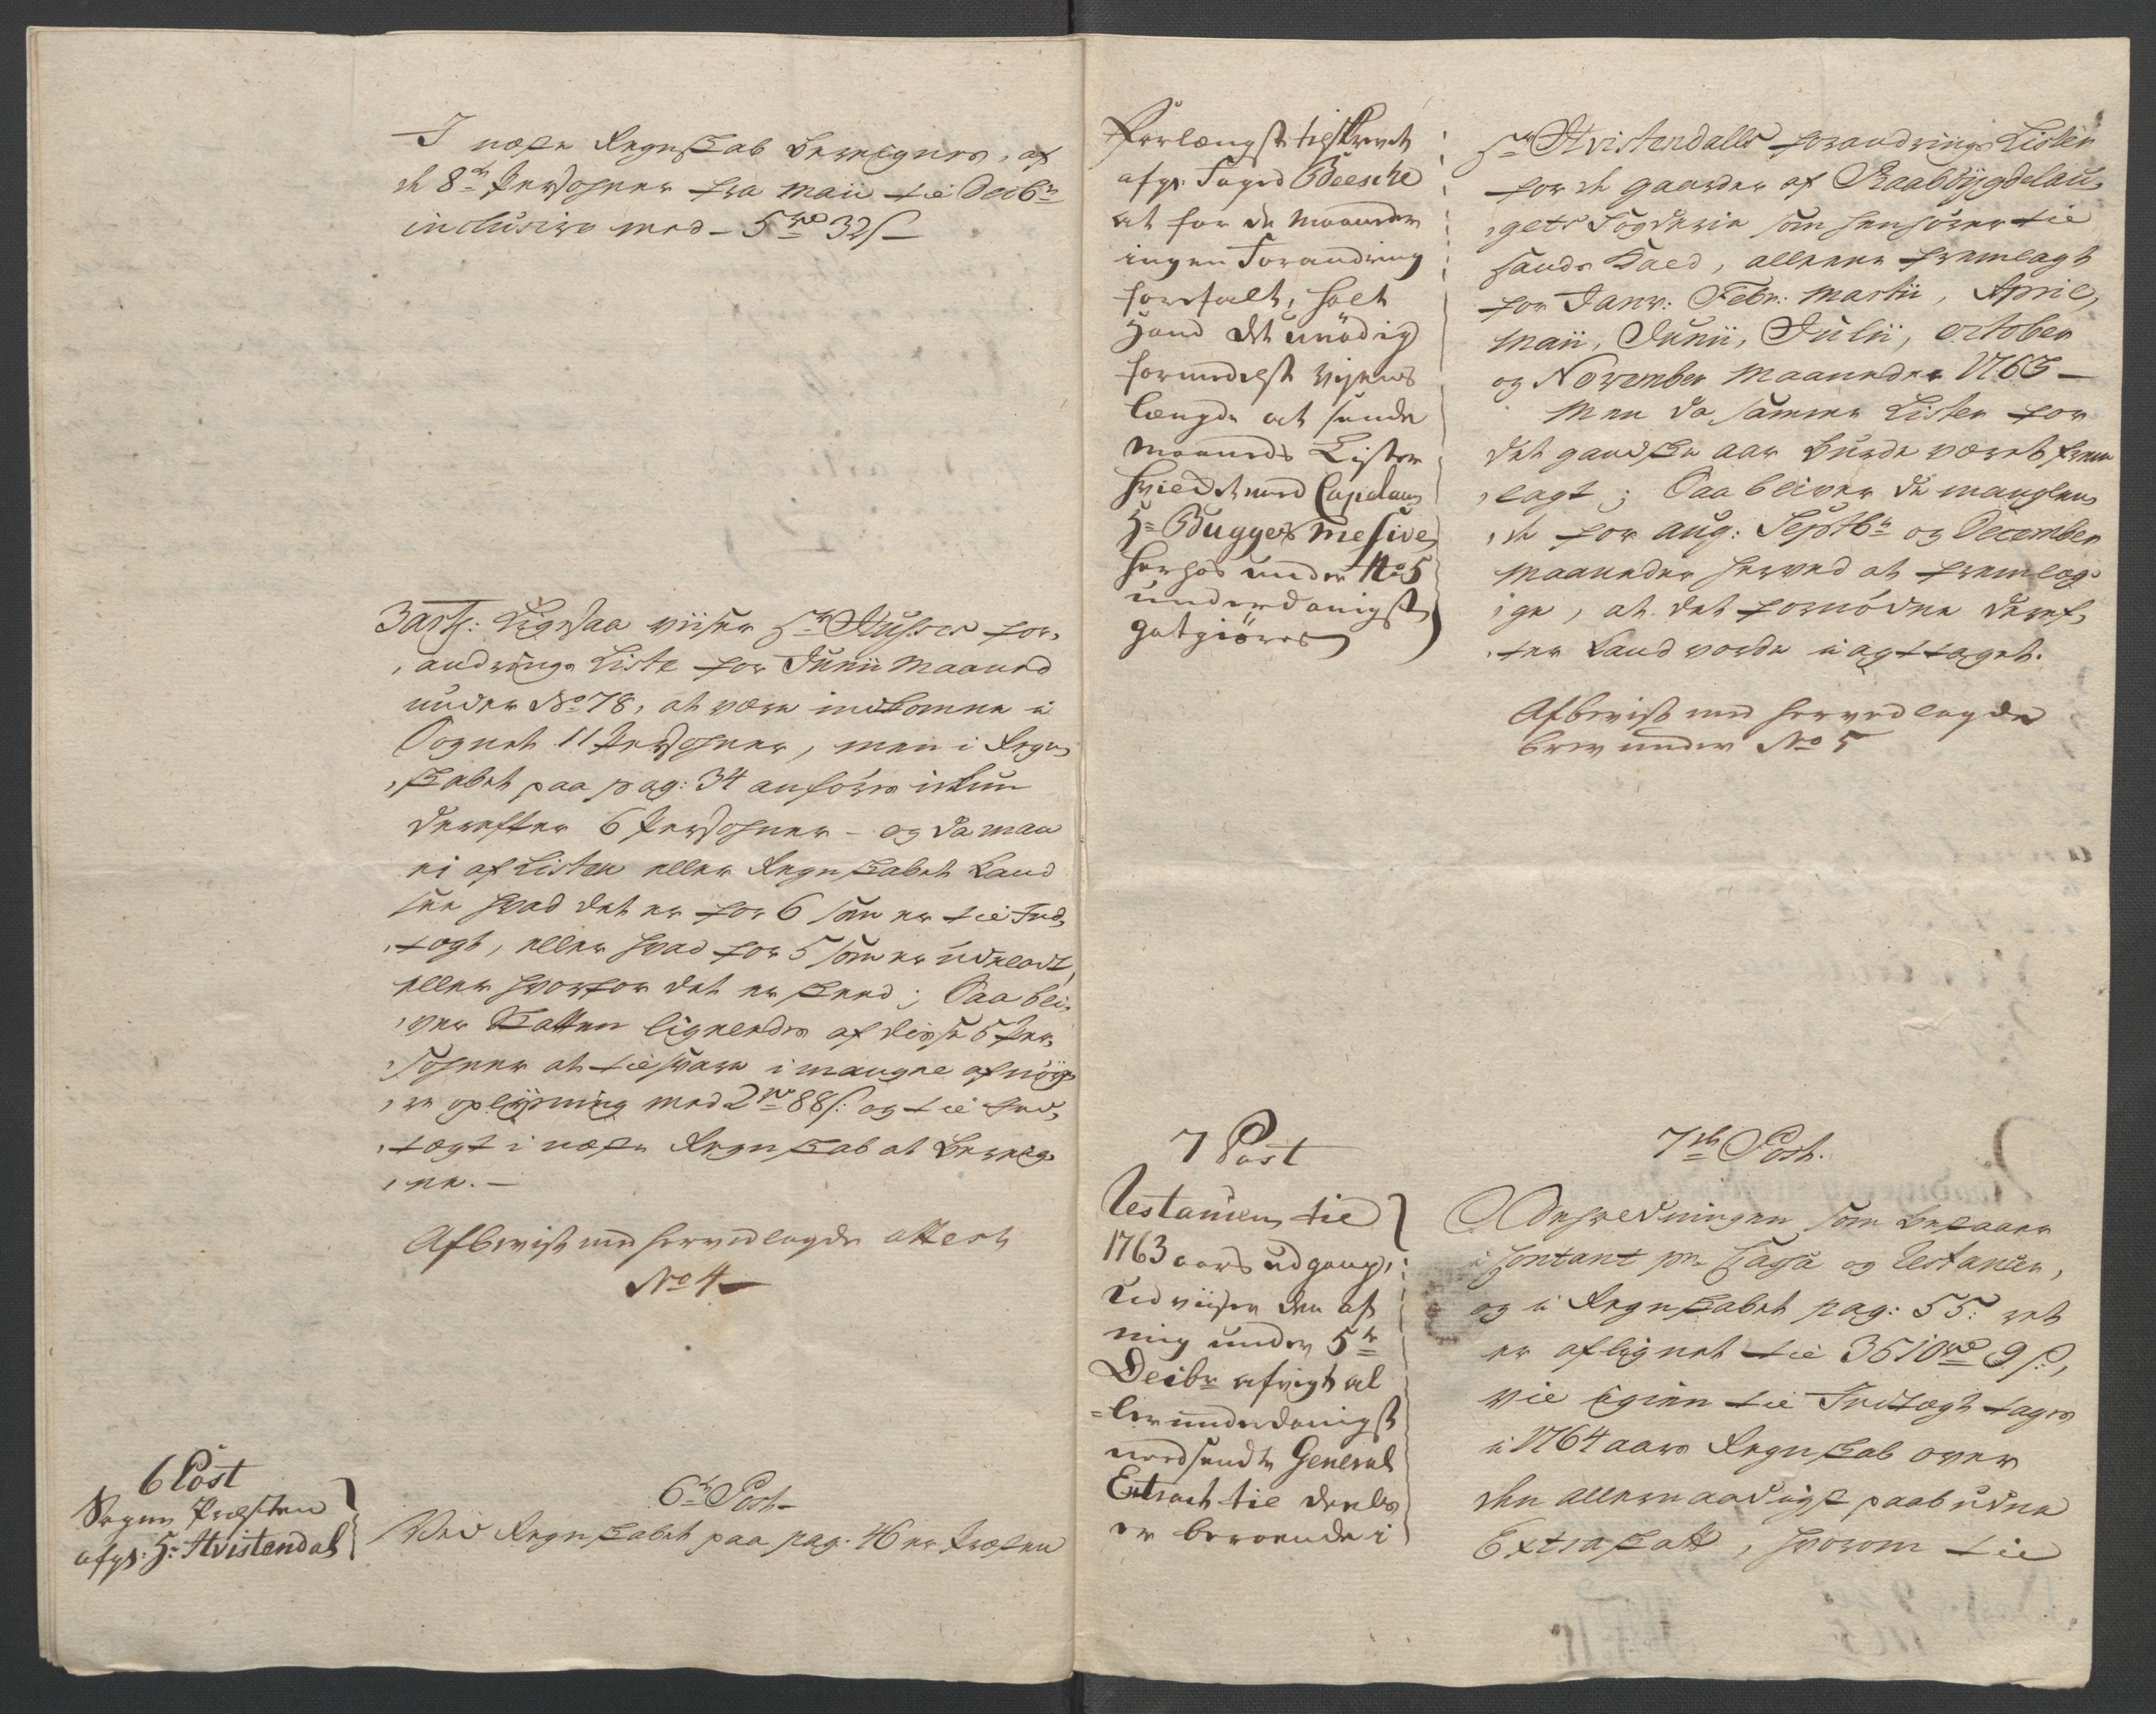 I næste Regnskab beregnes, af
de 8te Persohner fra Maii til Decbr
inclusive med – 5 rd 32 s –
3die: Ligesaa viiser Hr Russes for,
,andrings Liste for Junii Maaned
under No 78, at være indkomne i
Sognet 11 Persohner, men i Regn,
,skabet paa pag: 34 anføres ickun
derefter 6 Persohner – og da man
ei af Listen eller Regnskabet kand
see hvad det er for 6 som er til Ind,
,tegt, eller hvad for 5 som er udeladt,
eller hvorfor det er skeed; Saa bli,
,ver Skatten lignendes af disse 5 Per,
,sohner at tilsvare i mangel af nøy,
,re oplysning med 2 rd 88 s: og til Ind,
,tægt i næste Regnskab at bereg,
,ne. –
Afbevist med hervedlagde attest
No 4 –
6 Post
Sogne Præsten
afgl: Hr. Hvistendal
6te Post –
Ved Regnskabet paa pag: 46 er Præsten
Forlængst tilskrevet
afgl: Foged Beesche
at for de Maaneder
ingen Forandring
forefalt, holt
Hand det unødig
formedelst vejens
længde at sende
Maaneds Lister
hvilcket med Capelan
Hr Bugges Messive,
herhos under No 5
underdanigst
gotgiøres
Hr Hvistendalls forandrings Lister
for de gaarder af Raabÿgdelau,
,gets Fogderie som henhører til
hands Kald, alleene fremlagt
for Janv: Febr: Martii, April,
Maii, Junii, Julii, october
og November Maaneder 1763 –
Men da samme Lister for
det gandske aar burde været frem
,lagt; Saa bliver de manglen,
,de for Aug: Septbr og December
Maaneder herved at fremlæg,
,ge, at det fornødne deref,
,ter kand vorde iagttaget.
Afbevist med hervedlagde
brev under No 5
7 Post
Restancen til
1763 aars udgang,
udviiser den af
mig under 5te
Decbr afvigt al
=lerunderdanigst
nedsendte General
Extract til deels
er beroende i
7de Post.
Beholdningen som bestaaer
i Contant pr Cassa og Restancer,
og i Regnskabet pag: 55: ret
er aflignet til 3510 rd 9 s:,
vil igien til Indtægt tages
i 1764 aars Regnskab over
den allernaadigst paabudne
Extraskatt, hvorom til